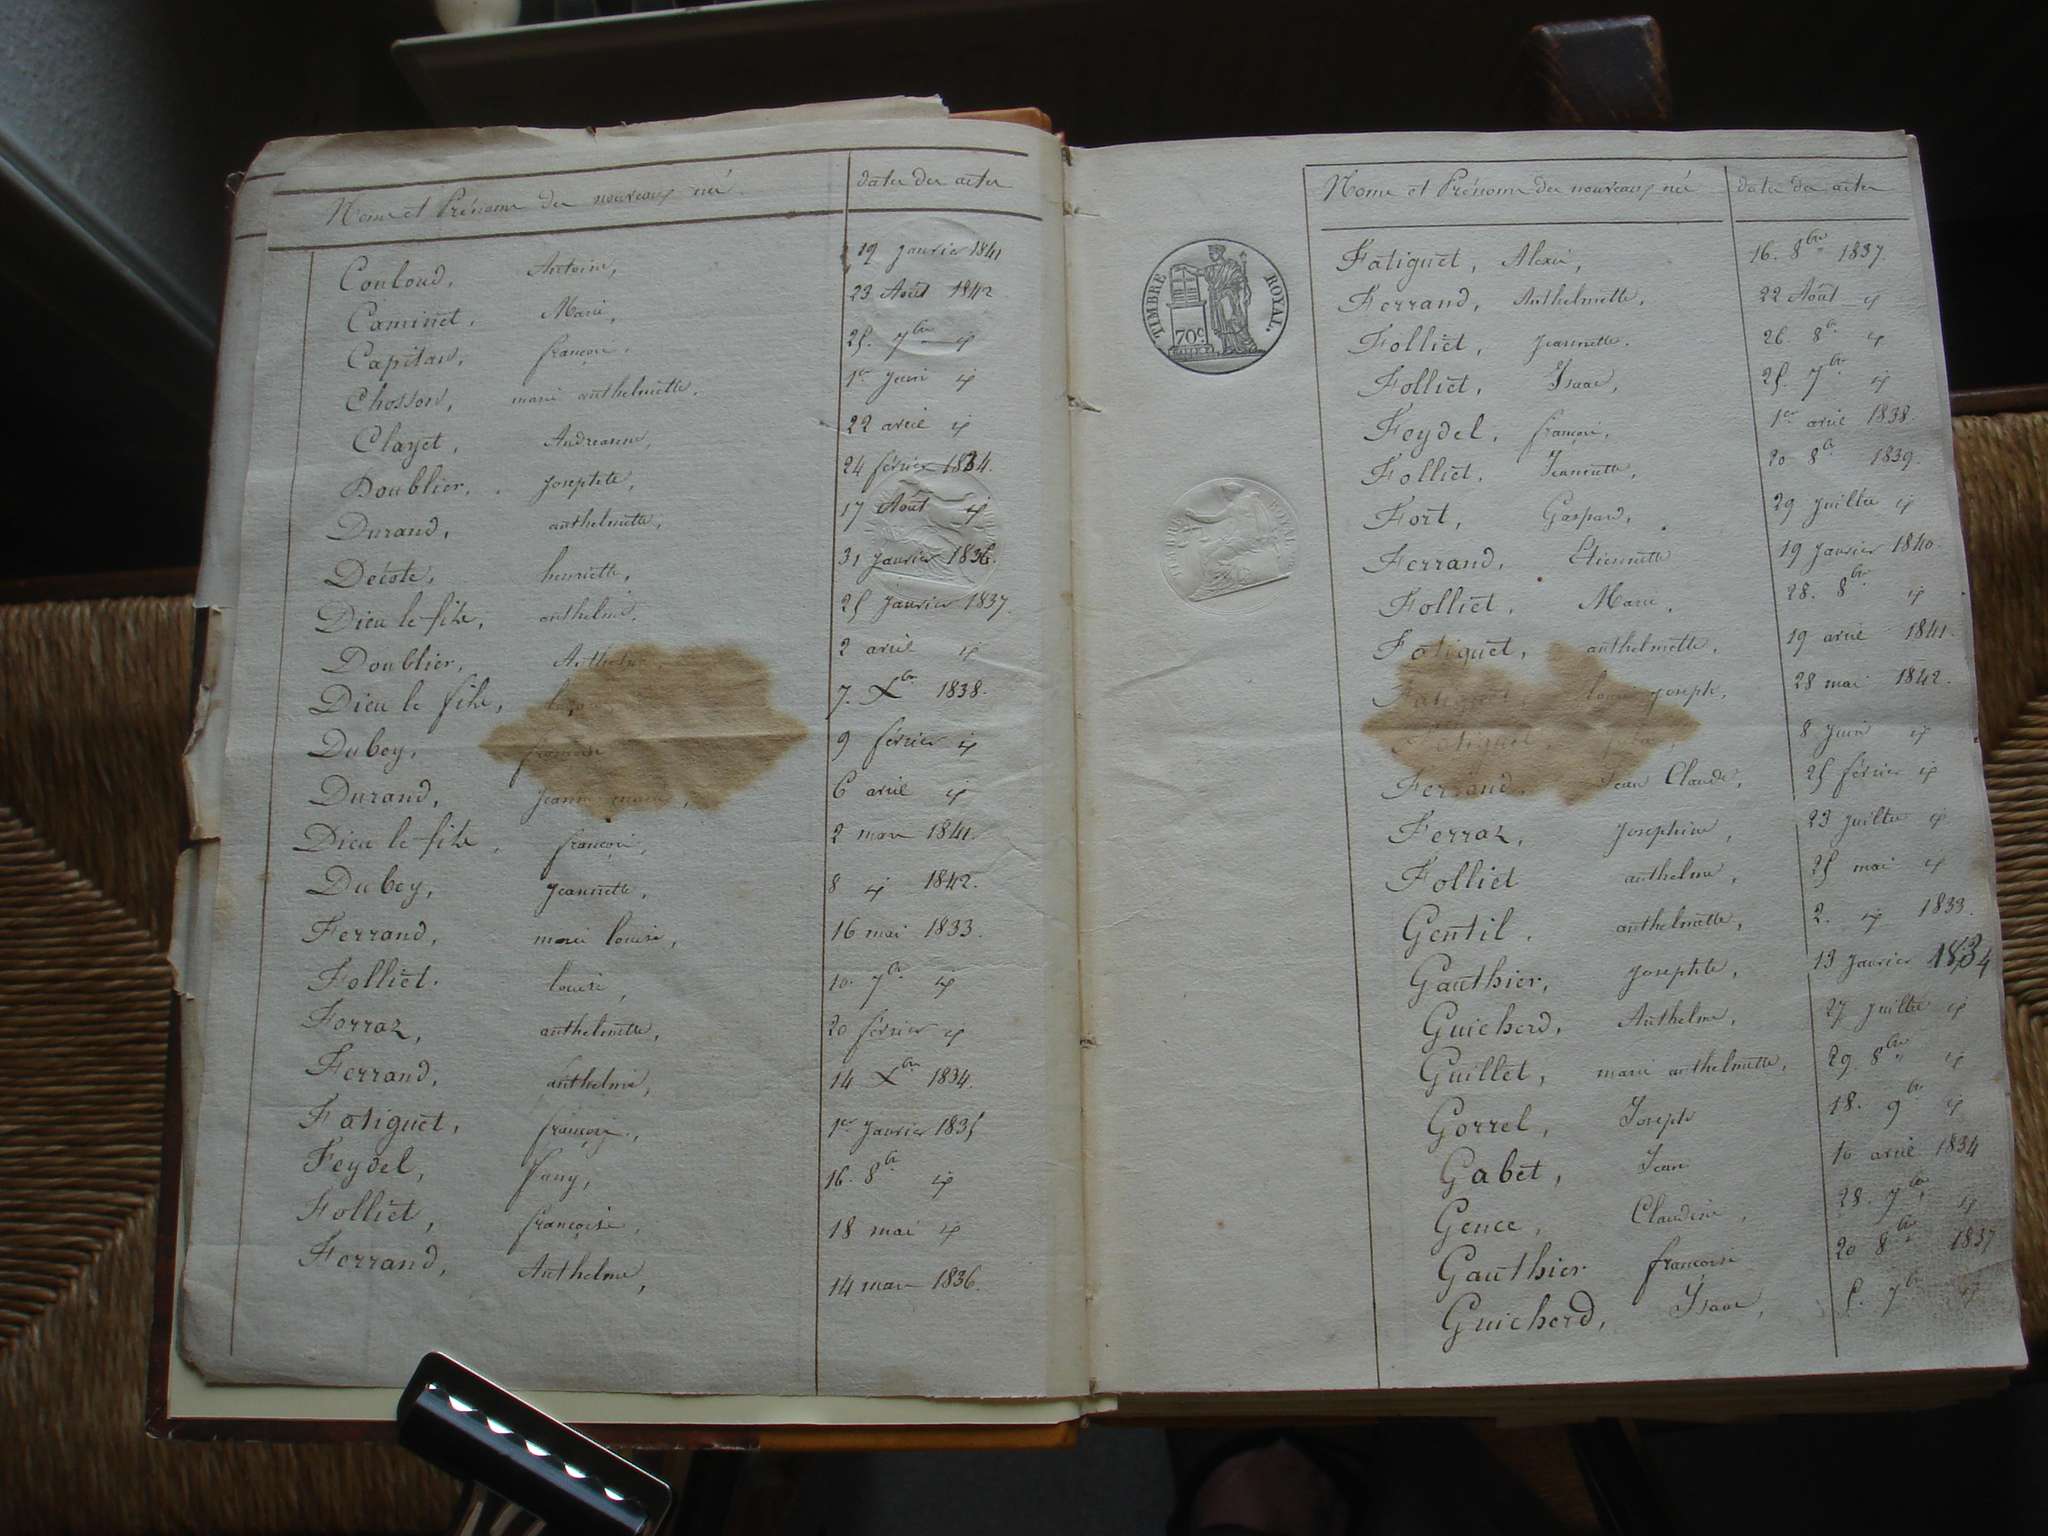 Noms et Prénoms des nouveaux nés. dates des actes
Couloud, Antoine, 19 Janvier 1841
Caminet, Marie, 23 Août 1842
Capitan, françois, 25. 7bre id
Chosson, marie anthelmette, 1er Juin id
Clayet, Andreanne, 22 avril id
Doublier, Josephte, 24 février 1834.
Durand, anthelmette, 17 Août id
Decote, henriette, 31 Janvier 1836.
Dieu le fils, anthelme, 25 Janvier 1837.
Doublier, Anthelme, 2 avril id
Dieu le fils, 7. Xbre 1838.
Dubey, françoise 9 février id
Durand, Jeanne marie, 6 avril id
Dieu le fils, françois, 2 mars 1841.
Dubey, Jeannette, 8 id 1842.
Ferrand, marie louise, 16 mai 1833.
Folliet. louise, 10. 7bre id
Ferraz, anthelmette, 20 février id
Ferrand, anthelme, 14 Xbre 1834.
Fatiguet, françois, 1er Janvier 1835
Feydel, fany, 16. 8bre id
Folliet, françoise, 18 mai id
Ferrand, Anthelme, 14 mars 1836.
TIMBRE ROYAL.
70c
Noms et Prénoms des nouveaux nés dates des actes
Fatiguet, Alexis, 16. 8bre 1837.
Ferrand, Anthelmette, 22 Août id
Folliet, Jeannette. 26. 8bre id
Folliet, Isaac, 25. 7bre id
Feydel, françois, 1er avril 1838.
Folliet. Jeannette, 20 8bre 1839.
Fort, Gaspard, 29 Juillet id
Ferrand, Etiennette 19 Janvier 1840.
Folliet, Marie, 28. 8bre id
Fatiguet, anthelmette, 19 avril 1841.
Fatiguet, louis Joseph, 28 mai 1842.
Fatiguet, 8 Juin id
Ferrand, Jean Claude, 25 février id
Ferraz, Josephine, 23 Juillet id
Folliet anthelme, 25 mai id
Gentil. anthelmette, 2. id 1833.
Gauthier, Josephte, 13 Janvier 1834
Guicherd, Anthelme, 27 Juillet id
Guillet, marie anthelmette, 29. 8bre id
Gorrel, Joseph 18. 9bre id
Gabet, Jean 10 avril 1834
Gence, Claudine, 28. 7bre id
Gauthier françoise 20 8bre 1837
Guicherd, Isaac, 5. 7bre id